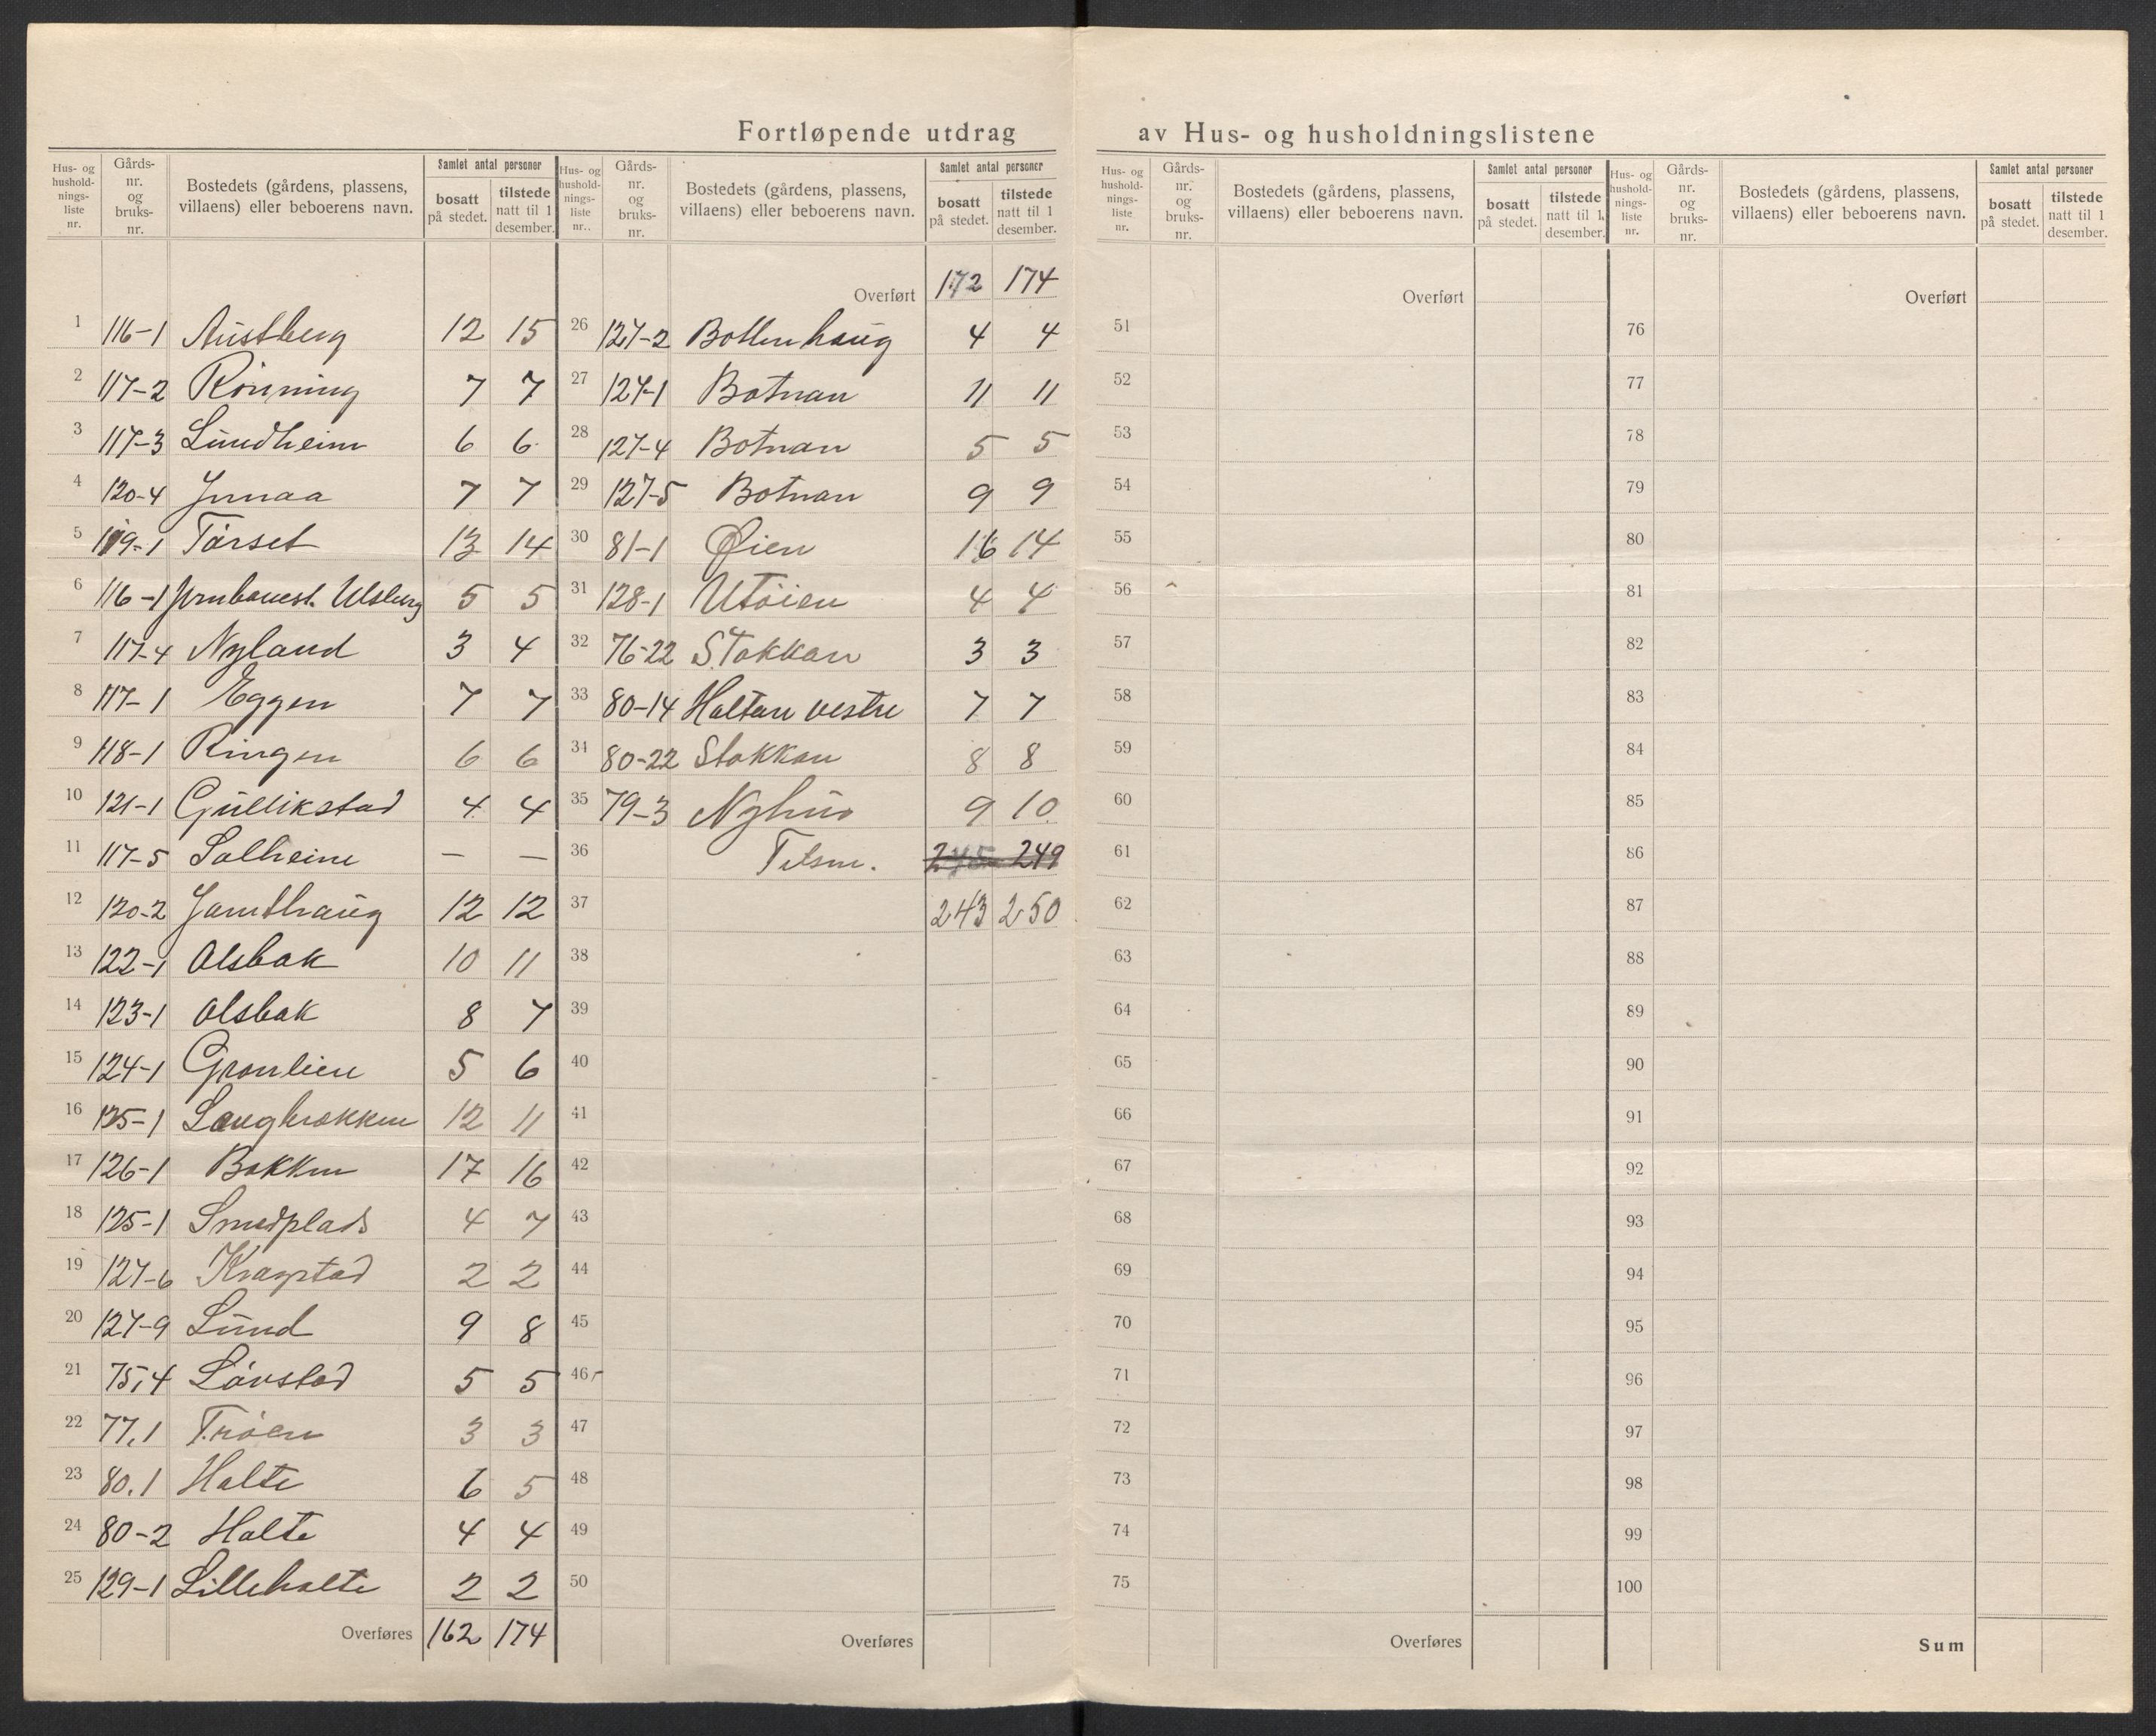 Fortløpende utdrag av Hus- og husholdningslistene
Hus- og husholdnings-liste nr. | Gårds-nr. og bruks-nr. | Bostedets (gårdens, plassens, villaens) eller beboerens navn. | Samlet antal personer | bosatt på stedet. | tilstede natt til 1 desember.
1 116-1 Austberg 12 15
2 117-2 Rönning 7 7
3 117-3 Lundheim 6 6
4 120-4 Innaa 7 7
5 119-1 Törset 13 14
6 116-1 Jernbanest. Ulsberg 5 5
7 117-4 Nyland 3 4
8 117-1 Eggen 7 7
9 118-1 Ringen 6 6
10 121-1 Gullikstad 4 4
11 117-5 Solheim — —
12 120-2 Jamthaug 12 12
13 122-1 Olsbak 10 11
14 123-1 Olsbak 8 7
15 124-1 Grønlien 5 6
16 125-1 Langbrekken 12 11
17 126-1 Bakken 17 16
18 125-1 Smedplads 4 7
19 127-6 Kragstad 2 2
20 127-9 Lund 9 8
21 75,4 Lövstad 5 5
22 77,1 Tröen 3 3
23 80.1 Holte 6 5
24 80-2 Holte 4 4
25 129-1 Lilleholte 2 2
Overføres 162 174
Hus- og husholdnings-liste nr.. | Gårds-nr. og bruks-nr. | Bostedets (gårdens, plassens, villaens) eller beboerens navn. | Samlet antal personer | bosatt på stedet. | tilstede natt til 1 desember.
Overført 172 174
26 127-2 Bottenhaug 4 4
27 127-1 Botnan 11 11
28 127-4 Botnan 5 5
29 127-5 Botnan 9 9
30 81-1 Øien 16 14
31 128-1 Utöien 4 4
32 76-22 Stokkan 3 3
33 80-14 Holtan vestre 7 7
34 80-22 Stokkan 8 8
35 79-3 Nyhus 9 10
36 Tilsm. 245 249
37 243 250
38
39
40
41
42
43
44
45
46
47
48
49
50
Overføres
Hus- og husholdnings-liste nr. | Gårds-nr. og bruks-nr. | Bostedets (gårdens, plassens, villaens) eller beboerens navn. | Samlet antal personer | bosatt på stedet. | tilstede natt til 1 desember.
Overført
51
52
53
54
55
56
57
58
59
60
61
62
63
64
65
66
67
68
69
70
71
72
73
74
75
Overføres
Hus- og husholdnings-liste nr. | Gårds-nr. og bruks-nr. | Bostedets (gårdens, plassens, villaens) eller beboerens navn. | Samlet antal personer | bosatt på stedet. | tilstede natt til 1 desember.
Overført
76
77
78
79
80
81
82
83
84
85
86
87
88
89
90
91
92
93
94
95
96
97
98
99
100
Sum